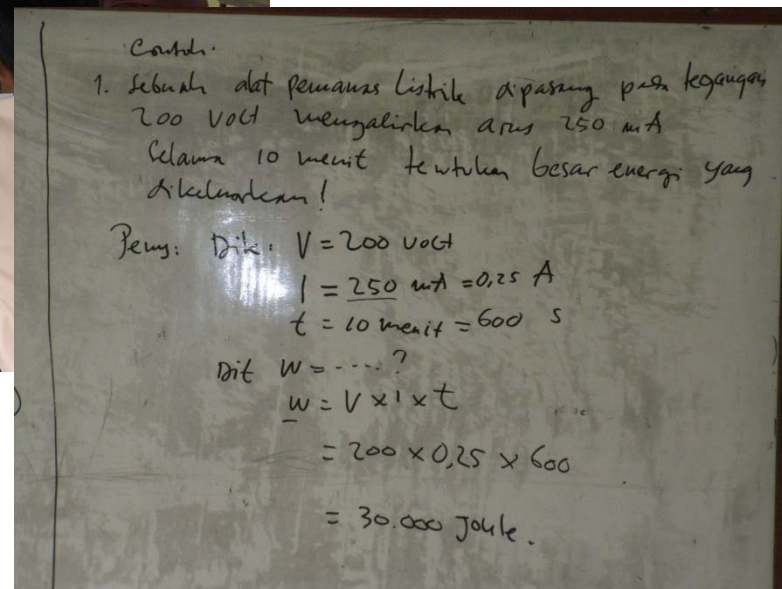 Contoh.
1. Sebuah alat pemanas listrik dipasang pada tegangan
200 volt mengalirkan arus 250 mA
Selama 10 menit tentukan besar energi yang
dikeluarkan!
Peny: Dik: V = 200 volt
I = 250 mA = 0,25 A
t = 10 menit = 600 s
Dit W = ....?
W = V x I x t
= 200 x 0,25 x 600
= 30.000 Joule.